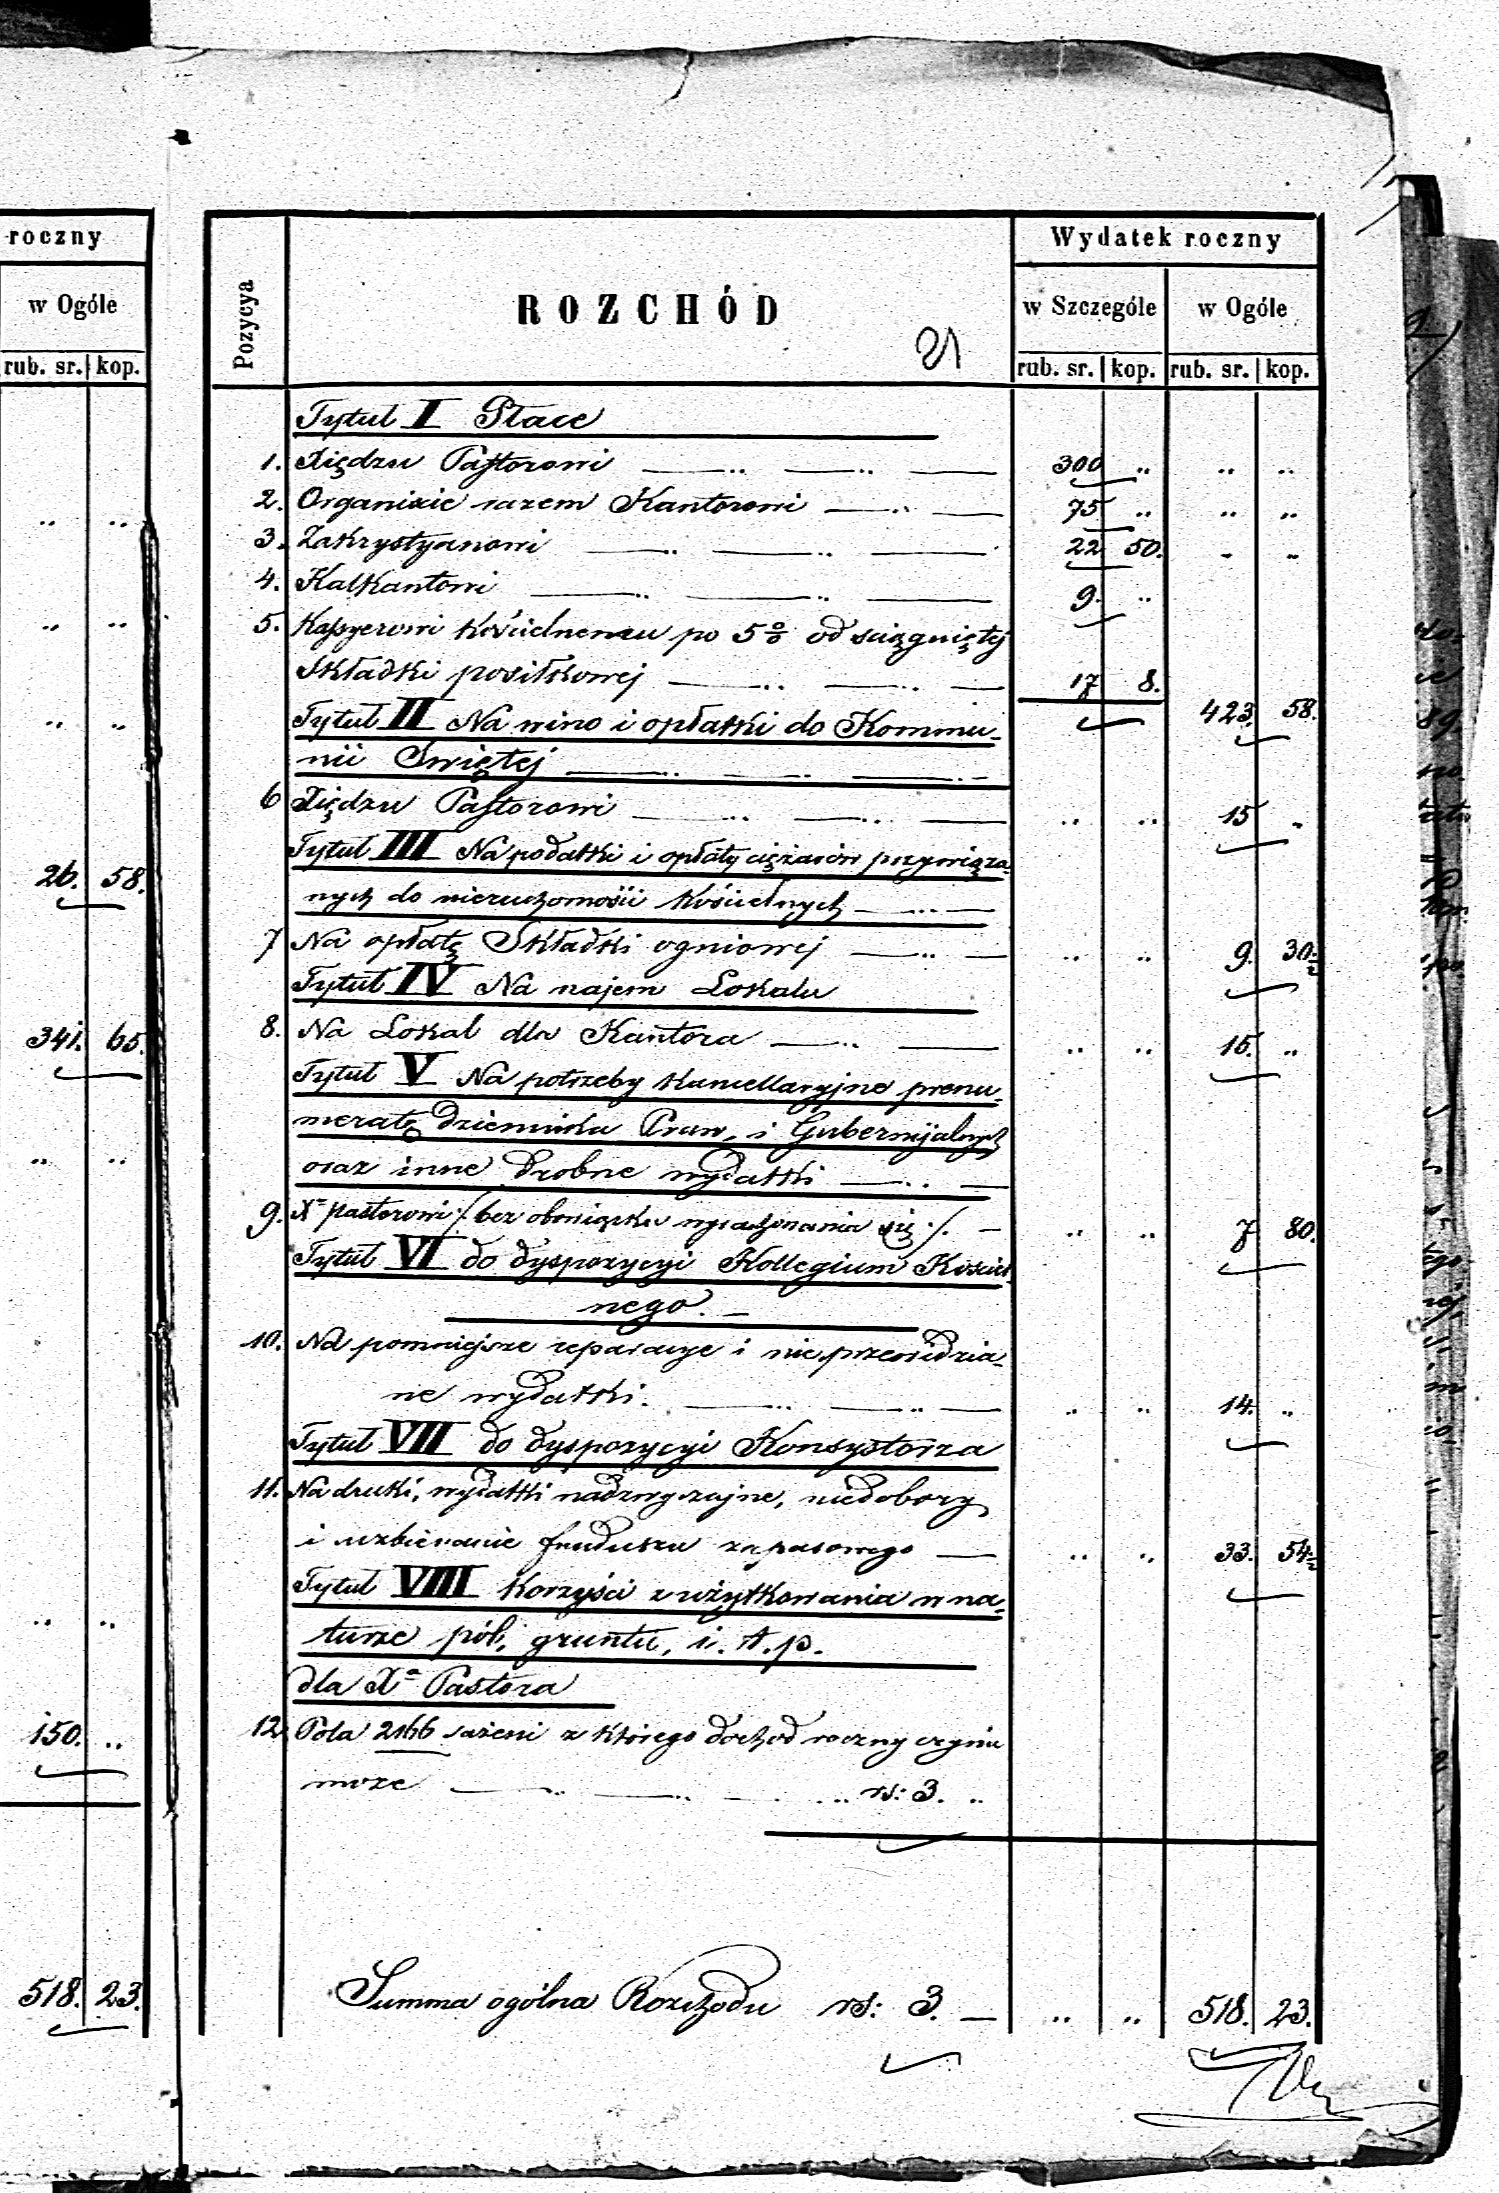 roczny
w Ogóle
rub. sr. kop.
.. ..
.. ..
.. ..
26. 58.
341. 65.
.. ..
.. ..
150. ..
518. 23.
Pozycya
ROZCHÓD
21
Wydatek roczny
w Szczególe w Ogóle
rub. sr. kop. rub. sr. kop.
Tytuł I Płace
1. Xiędzu Pastorowi 300 .. .. ..
2. Organiście razem Kantorowi 75 .. .. ..
3. Zakrystyanowi 22 50. .. ..
4. Kalkantowi 9. ..
5. Kassyerowi Kościelnemu po 5% od sciągniętej
Składki posiłkowej 17 8. 423. 58.
Tytuł II Na wino i opłatki do Kommu-
nii Świętej
6 Xiędzu Pastorowi .. .. 15 ..
Tytuł III Na podatki i opłaty ciężarów przywiąza-
nych do nieruchomości Kościelnych
7 Na opłatę Składki ogniowej .. .. 9. 30½
Tytuł IV Na najem Lokalu
8. Na Lokal dla Kantora .. .. 15. ..
Tytuł V Na potrzeby Kancellaryjne prenu-
meratę dziennika Praw, i Gubernijalnych
oraz inne drobne wydatki
9. Xᵃ pastorowi /: bez obowiązku wyrachowania się :/. .. .. 7 80.
Tytuł VI do dyspozycyi Kollegium Kościel-
nego.
10. Na pomniejsze reparacye i nieprzewidzia-
ne wydatki. .. .. 14. ..
Tytuł VII do dyspozycyi Konsystorza
11. Na druki, wydatki nadzwyczajne, niedobory
i uzbieranie funduszu zapasowego .. .. 33. 54½
Tytuł VIII Korzyści z użytkowania w na-
turze pól, gruntu, i. t. p.
dla Xᵃ Pastora
12. Pola 2166 sażeni z którego dochod roczny czynić
może rs: 3. ..
Summa ogólna Rozchodu rs: 3. .. .. 518. 23.